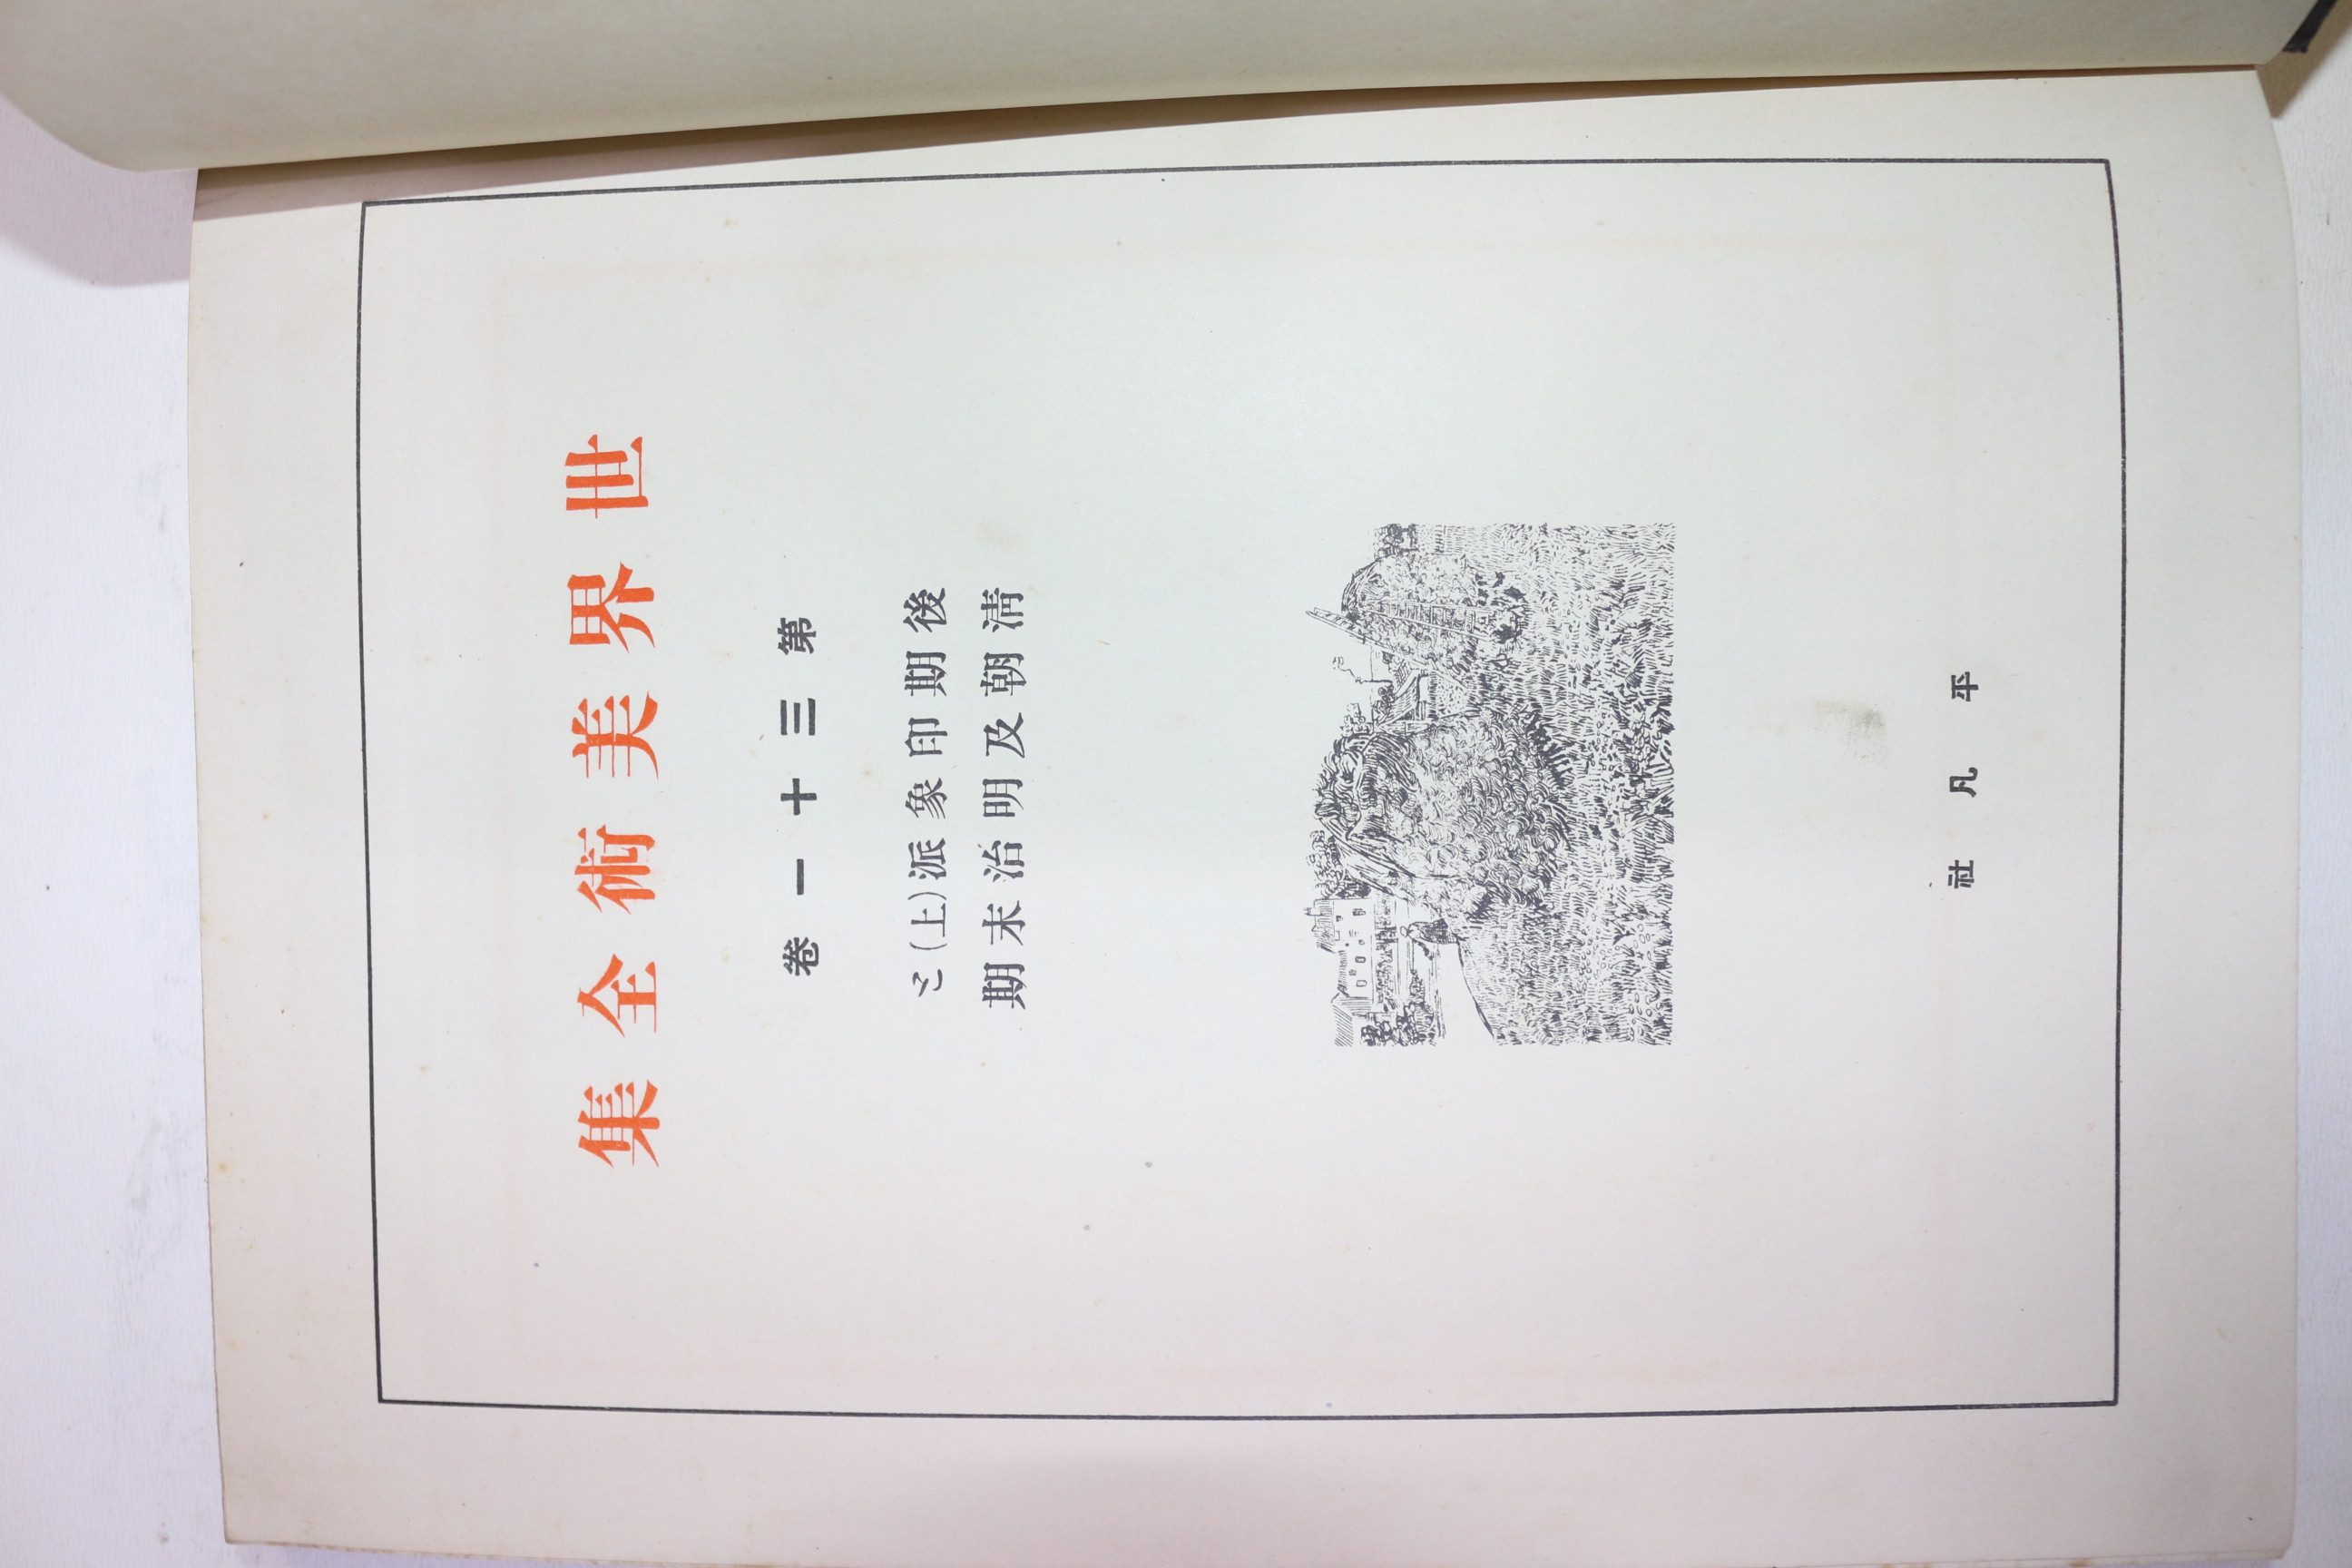 世界美術全集
第三十一卷
後期印象派(上)と
清朝及明治末期
平凡社